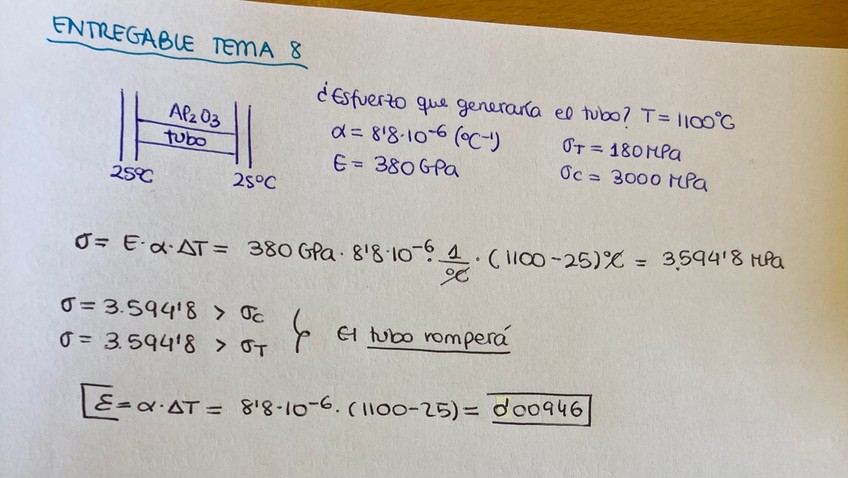 ENTREGABLE TEMA 8
¿Esfuerzo que generaría el tubo? T = 1100°C
Al2O3
tubo
25°C
25°C
α = 8'8·10⁻⁶ (°C⁻¹)
E = 380 GPa
σT = 180 MPa
σc = 3000 MPa
σ = E·α·ΔT = 380 GPa · 8'8·10⁻⁶ · 1/°C · (1100-25)°C = 3.594'8 MPa
σ = 3.594'8 > σc
σ = 3.594'8 > σT
El tubo romperá
ε = α·ΔT = 8'8·10⁻⁶ · (1100-25) = 0'00946